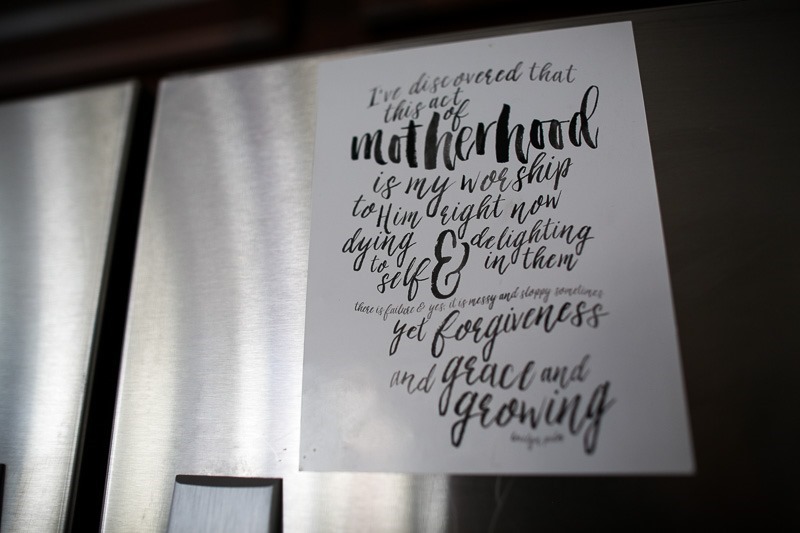 I've discovered that
this act
of
motherhood
is my worship
to Him right now
dying & delighting
to self in them
there is failure & yes, it is messy and sloppy sometimes
yet forgiveness
and grace and
growing